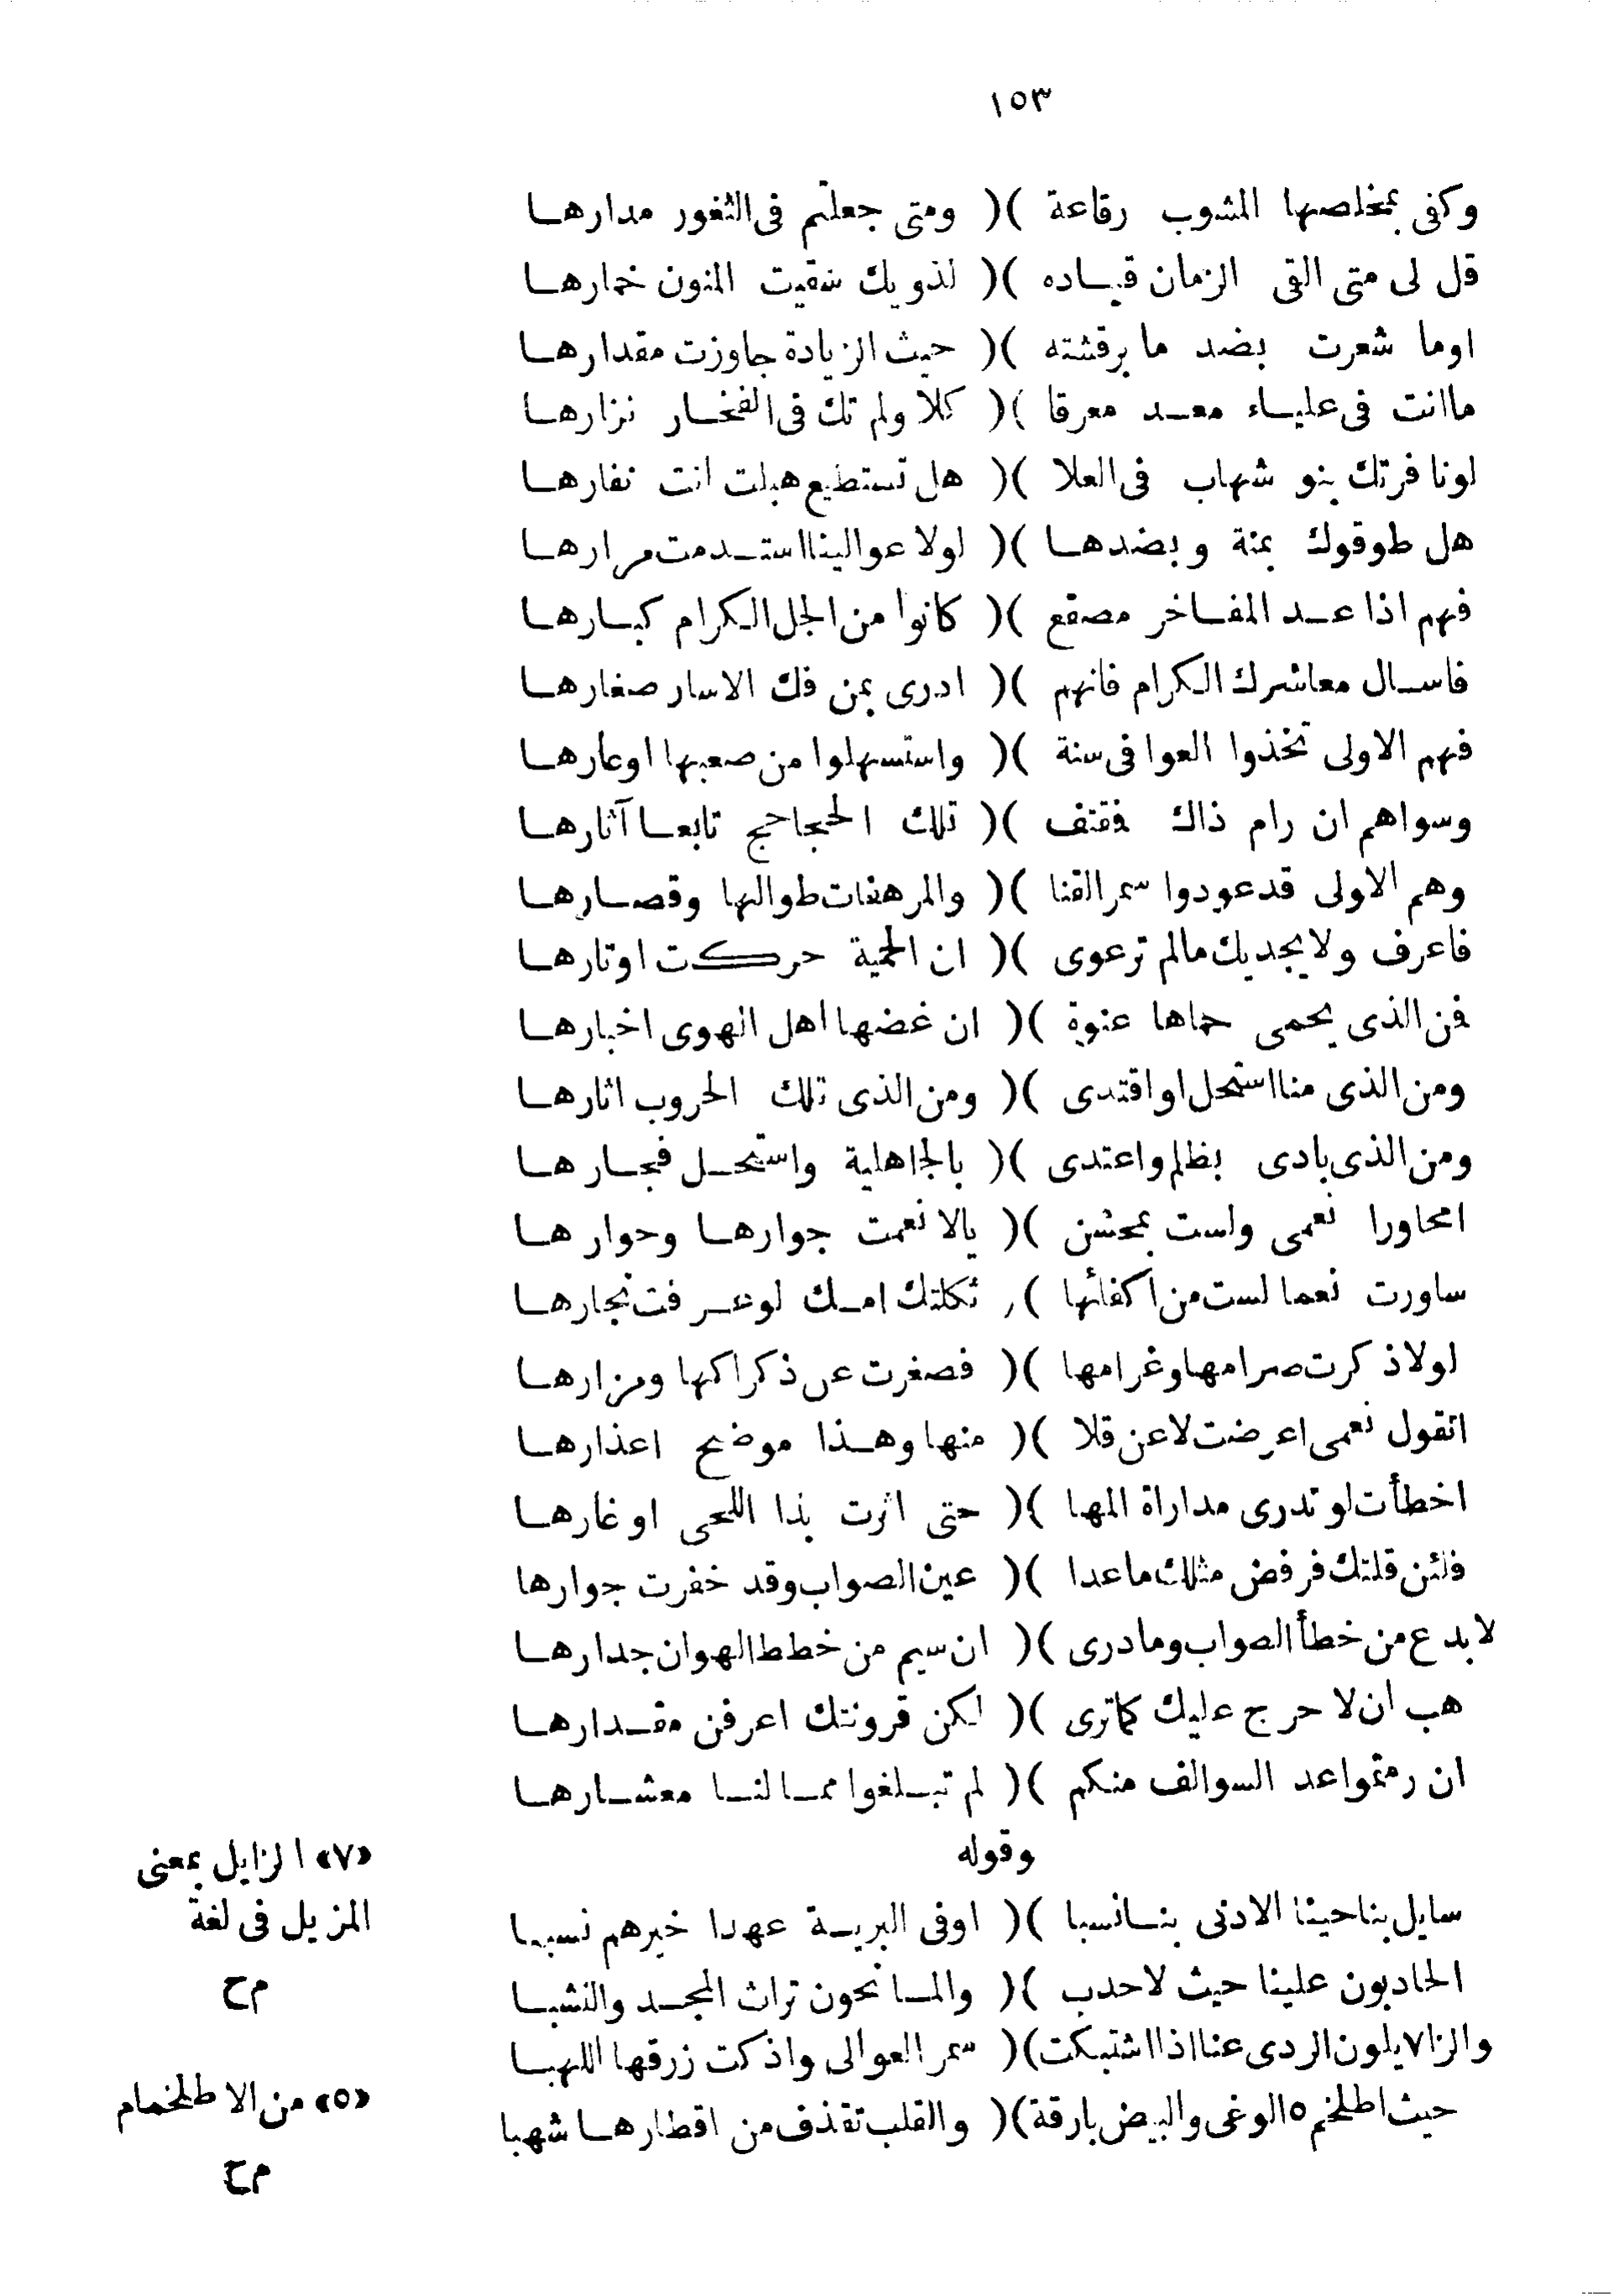 ١٥٣
وكفى بمخلصها المشوب رقاعة )( ومتى جعلتم فى الثغور مدارهــا
قل لى متى القى الزمان قيــاده )( لذويك سقيت المنون خمارهــا
اوما شعرت بضد ما برقشته )( حيث الزيادة جاوزت مقدارهــا
ما انت فى عليــاء معــد معرقا )( كلا ولم تك فى الفخــار نزارهــا
لو نافرتك بنو شهاب فى العلا )( هل تستطيع هبلت انت نفارهــا
هل طوقوك بمنة وبضدهــا )( لولا عوالينا استــدمت مرارهــا
فهم اذا عــد المفــاخر مصقع )( كانوا من الجل الكرام كبــارهــا
فاســال معاشرك الكرام فانهم )( ادرى بمن فك الاسار صغارهــا
فهم الاولى تخذوا العوافى سنة )( واستسهلوا من صعبها اوعارهــا
وسواهم ان رام ذاك فقتف )( تلك الحجاحج تابعــا آثارهــا
وهم الاولى قد عودوا سمر القنا )( والمرهفات طوالها وقصــارهــا
فاعرف ولا يجديك مالم ترعوى )( ان الحمية حركت اوتارهــا
فمن الذى يحمى حماها عنوة )( ان غضها اهل الهوى اخبارهــا
ومن الذى منا استحل او اقتدى )( ومن الذى تلك الحروب اثارهــا
ومن الذى بادى بظلم واعتدى )( بالجاهلية واستحــل فجــارهــا
امحاورا نعمى ولست بمحشن )( يالا نعمت جوارهــا وحوارهــا
ساورت نعما لست من اكفائها )( ثكلتك امــك لو عــرفت نجارهــا
لولا ذكرت صرامها وغرامها )( فصغرت عن ذكراكها ومزارهــا
اتقول نعمى اعرضت لا عن قلا )( منها وهــذا موضح اعذارهــا
اخطأت لو تدرى مداراة المها )( حتى اثرت بذا اللحى اوغارهــا
فلئن قلتك فرفض مثلك ما عدا )( عين الصواب وقد خفرت جوارها
لا بدع من خطأ الصواب وما درى )( ان سيم من خطط الهوان جدارهــا
هب ان لا حرج عليك كما ترى )( لكن قرونتك اعرفن مقــدارهــا
ان رمتموا عد السوالف منكم )( لم تبــلغوا ممــا لنــا معشــارهــا
وقوله
سايل بنا حينا الادنى بنــا نسبا )( اوفى البريــة عهدا خيرهم نسبــا
الحادبون علينا حيث لا حدب )( والمــانحون تراث المجــد والنشبــا
والزا٧يلون الردى عنا اذا اشتبكت )( سمر العوالى واذكت زرقها اللهبــا
حيث اطلخم ٥ الوغى والبيض بارقة )( والقلب تقذف من اقطارهــا شهبا
«٧» الزايل بمعنى
المزيل فى لغة
م ح
«٥» من الاطلخمام
م ح